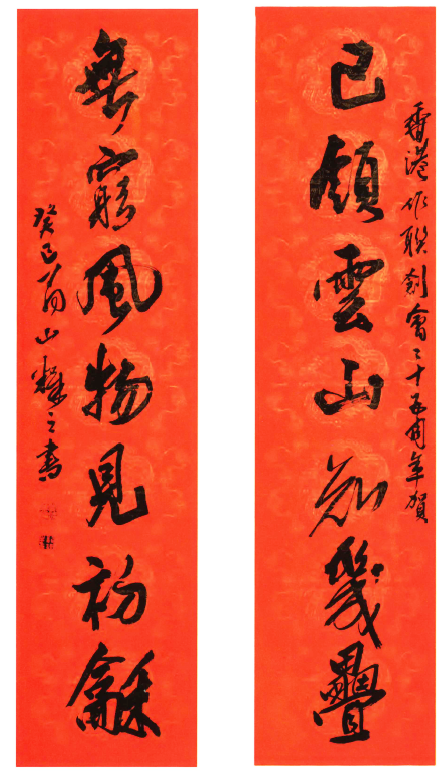 香港作聯創會二十五周年賀
已領雲山知幾疊
無窮風物見初龢
癸巳山之書